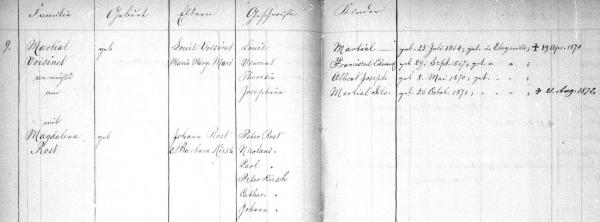 Familie Geburt Eltern Geschwister Kinder
9. Martial geb Louis Voisinet Louis Martial — geb. 23 Juli 1864, get. in Elcysville, ✝ 19 Apr. 1870
Voisinet Maria Marg. Mari Vincent geb 29. Sept. 1867, " " "
vermählt Theresia Albert Joseph geb 8. Mai 1870, get. " " "
am Josephina Martial geb. 26 Octob. 1871, " " " ✝ 21. Aug. 1872.
mit
Magdalena geb Johann Rost Peter Rost
Rost & Barbara Kirsch Nicolaus "
Carl "
Peter Kirsch
Cathar. "
Johann "